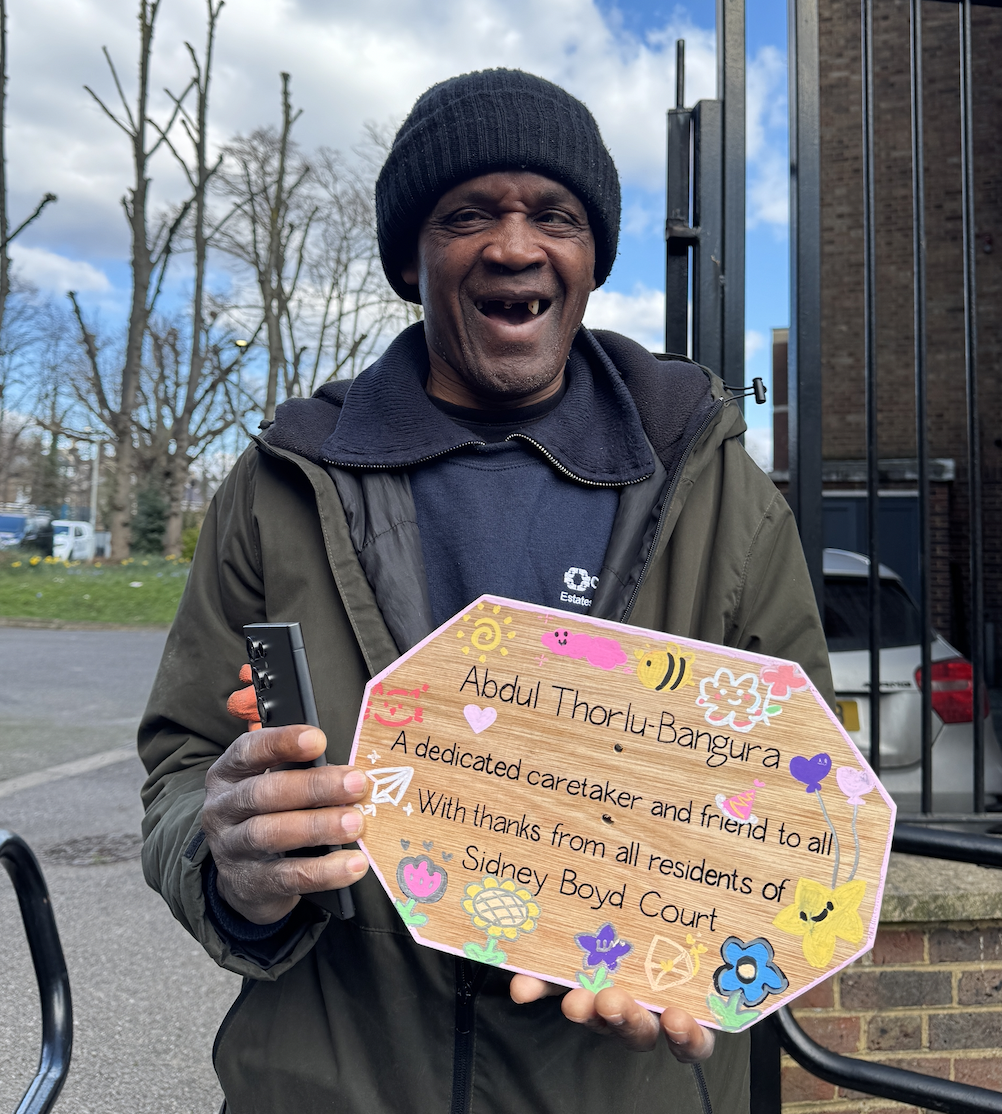 Estates
Abdul Thorlu-Bangura
A dedicated caretaker and friend to all
With thanks from all residents of
Sidney Boyd Court